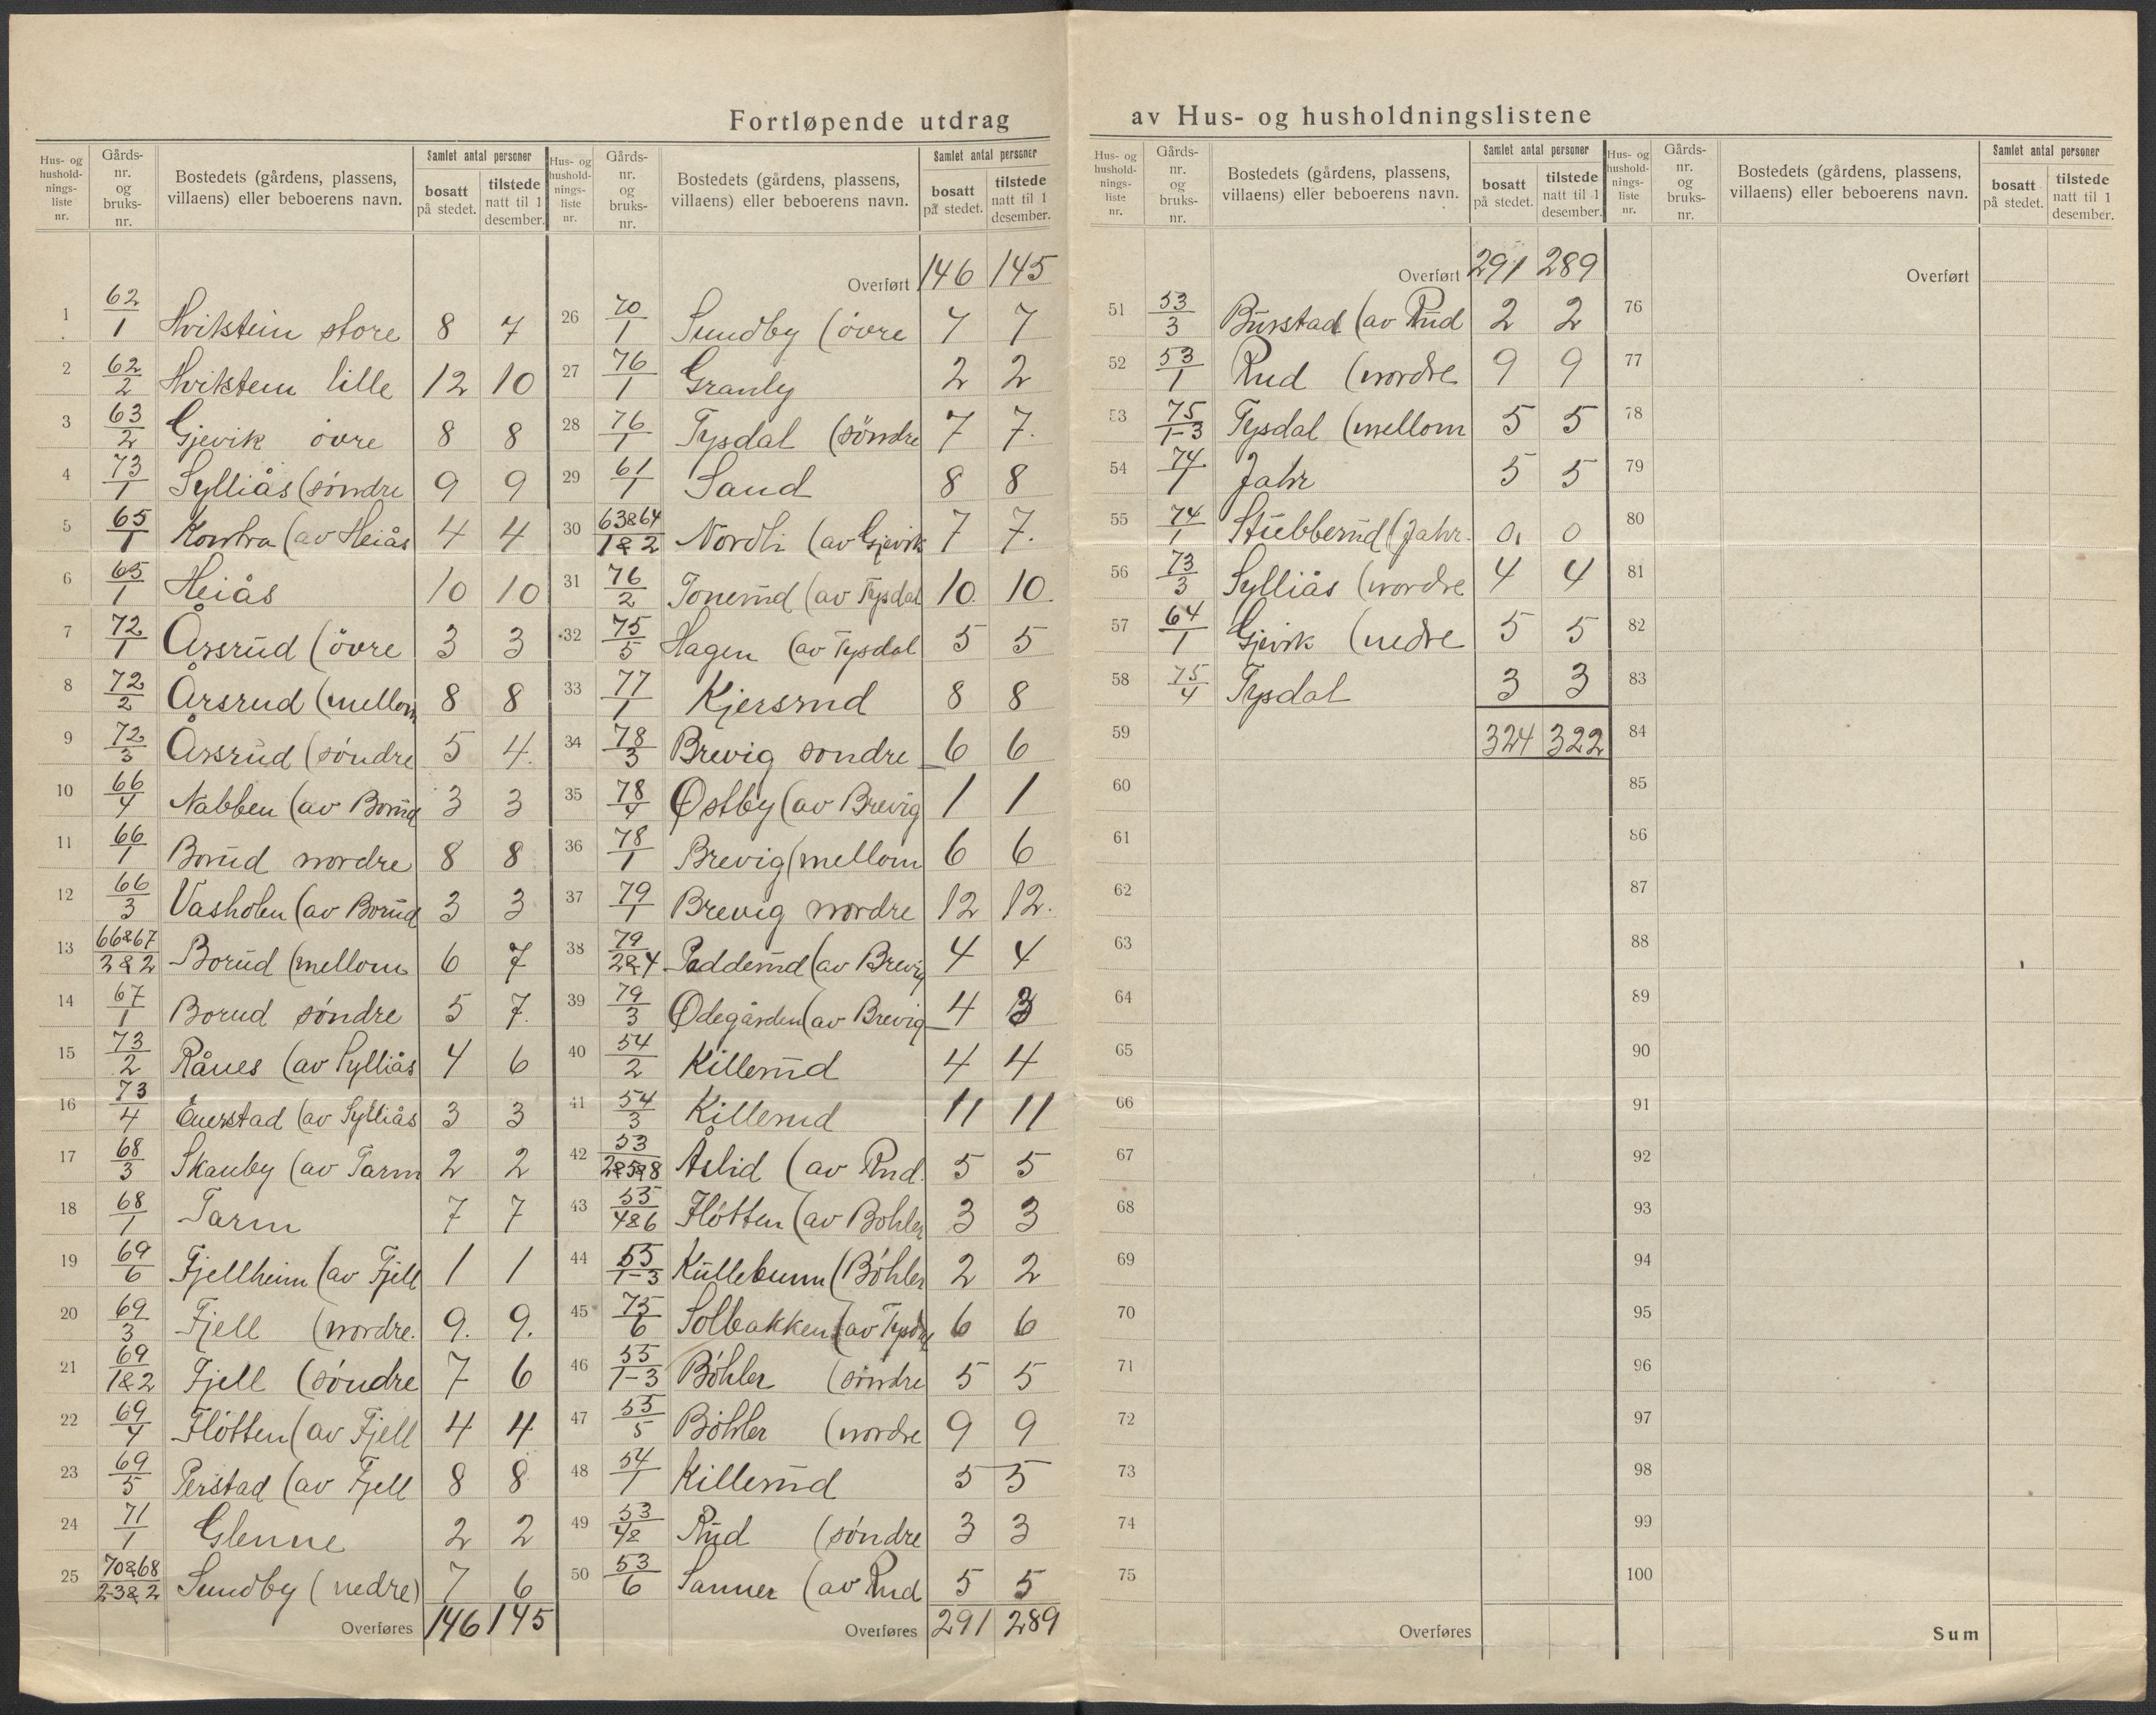 Fortløpende utdrag av Hus- og husholdningslistene
Hus- og hushold-nings-liste nr. | Gårds-nr. og bruks-nr. | Bostedets (gårdens, plassens, villaens) eller beboerens navn. | Samlet antal personer | bosatt på stedet. | tilstede natt til 1 desember.
1 62/1 Hvikstein store 8 7
2 62/2 Hvikstein lille 12 10
3 63/2 Gjevik övre 8 8
4 73/1 Sylliås (söndre 9 9
5 65/1 Komtra (av Heiås 4 4
6 65/1 Heiås 10 10
7 72/1 Årsrud (övre 3 3
8 72/2 Årsrud (mellom 8 8
9 72/3 Årsrud (söndre 5 4.
10 66/4 Nabben (av Borud 3 3
11 66/1 Borud nordre 8 8
12 66/3 Vasholen (av Borud 3 3
13 66&67/2&2 Borud (mellom 6 7
14 67/1 Borud söndre 5 7.
15 73/2 Rånes (av Sylliås 4 6
16 73/4 Enerstad (av Sylliås 3 3
17 68/3 Skauby (av Tarm 2 2
18 68/1 Tarm 7 7
19 69/6 Fjellheim (av Fjell 1 1
20 69/3 Fjell (nordre. 9. 9.
21 69/1&2 Fjell (söndre 7 6
22 69/4 Flötten (av Fjell 4 4
23 69/5 Perstad (av Fjell 8 8
24 71/1 Glenne 2 2
25 70&68/2-3&2 Sundby (nedre) 7 6
Overføres 146 145
Hus- og hushold-nings-liste nr. | Gårds-nr. og bruks-nr. | Bostedets (gårdens, plassens, villaens) eller beboerens navn. | Samlet antal personer | bosatt på stedet. | tilstede natt til 1 desember.
Overført 146 145
26 70/1 Sundby (övre 7 7
27 76/1 Granly 2 2
28 76/1 Tysdal (söndre 7 7.
29 61/1 Sand 8 8
30 63&64/1&2 Nordli (av Gjevik 7 7.
31 76/2 Tonerud (av Tysdal 10. 10.
32 75/5 Hagen (av Tysdal 5 5
33 77/1 Kjersrud 8 8
34 78/3 Brevig sondre 6 6
35 78/4 Østby (av Brevig 1 1
36 78/1 Brevig (mellom 6 6
37 79/1 Brevig nordre 12 12.
38 79/2&4 Padderud (av Brevig 4 4
39 79/3 Ødegården (av Brevig 4 3
40 54/2 Killerud 4 4
41 54/3 Killerud 11 11
42 53/2&5&8 Åslid (av Rud. 5 5
43 55/4&6 Flötten (av Bohler 3 3
44 55/1-3 Küllebunn (Böhler 2 2
45 75/6 Solbakken (av Tysdal 6 6
46 55/1-3 Böhler (söndre 5 5
47 55/5 Böhler (nordre 9 9
48 54/1 Killerud 5 5
49 53/4 Rud (söndre 3 3
50 53/6 Sanner (av Rud 5 5
Overføres 291 289
Hus- og hushold-nings-liste nr. | Gårds-nr. og bruks-nr. | Bostedets (gårdens, plassens, villaens) eller beboerens navn. | Samlet antal personer | bosatt på stedet. | tilstede natt til 1 desember.
Overført 291 289
51 53/3 Burstad (av Rud 2 2
52 53/1 Rud (nordre 9 9
53 75/1-3 Tysdal (mellom 5 5
54 74/1 Jahr 5 5
55 74/1 Stubberud (Jahr. 0. 0
56 73/3 Sylliås (nordre 4 4
57 64/1 Gjevik (nedre 5 5
58 75/4 Tysdal 3 3
59 324 322
60
61
62
63
64
65
66
67
68
69
70
71
72
73
74
75
Overføres
Hus- og hushold-nings-liste nr. | Gårds-nr. og bruks-nr. | Bostedets (gårdens, plassens, villaens) eller beboerens navn. | Samlet antal personer | bosatt på stedet. | tilstede natt til 1 desember.
Overført
76
77
78
79
80
81
82
83
84
85
86
87
88
89
90
91
92
93
94
95
96
97
98
99
100
Sum